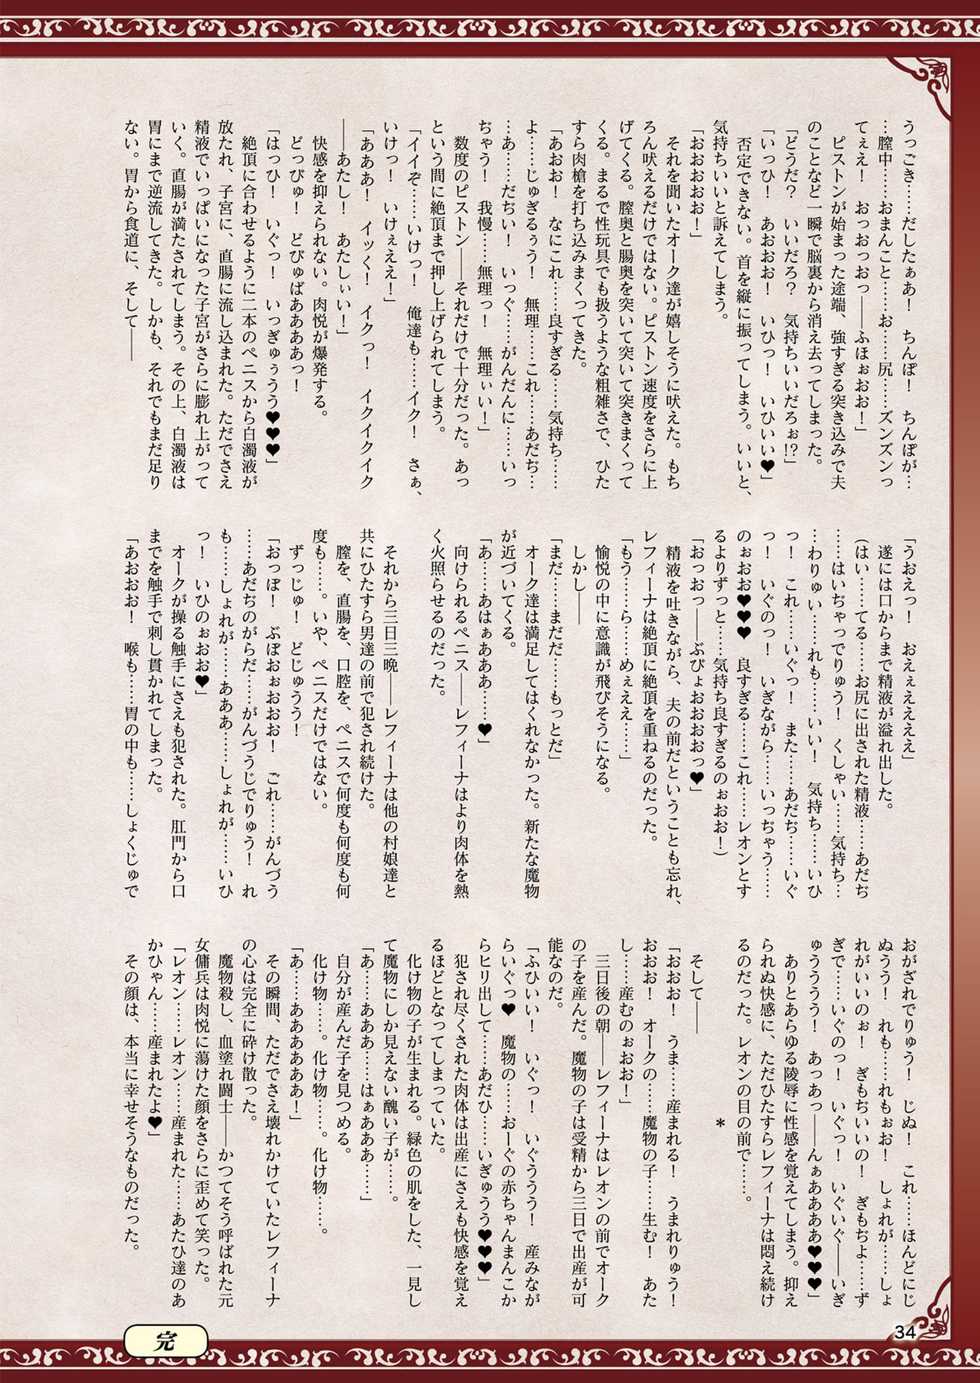 うっごき……だしたぁあ！　ちんぽ！　ちんぽが…
…膣中……おまんこと……お……尻……ズンズンっ
てぇえ！　おっおっおっ――ふほぉおお！」
　ピストンが始まった途端、強すぎる突き込みで夫
のことなど一瞬で脳裏から消え去ってしまった。
「どうだ？　いいだろ？　気持ちいいだろぉ!?」
「いっひ！　あおおお！　いひっ！　いひいい♥」
　否定できない。首を縦に振ってしまう。いいと、
気持ちいいと訴えてしまう。
「おおおおお！」
　それを聞いたオーク達が嬉しそうに吠えた。もち
ろん吠えるだけではない。ピストン速度をさらに上
げてくる。膣奥と腸奥を突いて突いて突きまくって
くる。まるで性玩具でも扱うような粗雑さで、ひた
すら肉槍を打ち込みまくってきた。
「あおお！　なにこれ……良すぎる……気持ち……
よ……じゅぎるぅう！　無理……これ……あだぢ…
…あ……だぢい！　いっぐ……がんだんに……いっ
ぢゃう！　我慢……無理っ！　無理ぃい！」
　数度のピストン――それだけで十分だった。あっ
という間に絶頂まで押し上げられてしまう。
「イイぞ……いけっ！　俺達も……イク！　さぁ、
いけっ！　いけぇええ！」
「あああ！　イッく！　イクっ！　イクイクイク
――あたし！　あたしぃい！」
　快感を抑えられない。肉悦が爆発する。
　どっぴゅ！　どびゅばああああっ！
「はっひ！　いぐっ！　いっぎゅぅうう♥♥♥」
　絶頂に合わせるように二本のペニスから白濁液が
放たれ、子宮に、直腸に流し込まれた。ただでさえ
精液でいっぱいになった子宮がさらに膨れ上がって
いく。直腸が満たされてしまう。その上、白濁液は
胃にまで逆流してきた。しかも、それでもまだ足り
ない。胃から食道に、そして――
「うおえっ！　おえぇええええ」
　遂には口からまで精液が溢れ出した。
（はい……てる……お尻に出された精液……あだぢ
……はいぢゃってりゅう！　くしゃい……気持ち…
…わりゅい……れも……いい！　気持ち……いひ
っ！　これ……いぐっ！　また……あだぢ……いぐ
っ！　いぐのっ！　いぎながら……いっぢゃう……
のぉおお♥♥♥　良すぎる……これ……レオンとす
るよりずっと……気持ち良すぎるのぉおお！）
「おっおっ――ぶぴょおおおおっ♥」
　精液を吐きながら、夫の前だということも忘れ、
レフィーナは絶頂に絶頂を重ねるのだった。
「もう……ら……めぇええ……」
　愉悦の中に意識が飛びそうになる。
　しかし――
「まだ……まだだ……もっとだ」
　オーク達は満足してはくれなかった。新たな魔物
が近づいてくる。
「あ……あはぁあああ……♥」
　向けられるペニス――レフィーナはより肉体を熱
く火照らせるのだった。
　それから三日三晩――レフィーナは他の村娘達と
共にひたすら男達の前で犯され続けた。
　膣を、直腸を、口腔を、ペニスで何度も何度も何
度も……。いや、ペニスだけではない。
　ずっじゅ！　どじゅうう！
「おっぽ！　ぶぽおぉおおお！　ごれ……がんづう
……あだぢのがらだ……がんづうじでりゅう！　れ
も……しょれが……あああ……しょれが……いひ
っ！　いひのぉおお♥」
　オークが操る触手にさえも犯された。肛門から口
までを触手で刺し貫かれてしまった。
「あおおお！　喉も……胃の中も……しょくじゅで
おがざれでりゅう！　じぬ！　これ……ほんどにじ
ぬうう！　れも……れもぉお！　しょれが……しょ
れがいいのぉ！　ぎもぢいいの！　ぎもぢよ……ず
ぎで……いぐのっ！　いぐっ！　いぐいぐ――いぎ
ゅうううう！　あっあっ――んぁああああ♥♥♥」
　ありとあらゆる陵辱に性感を覚えてしまう。抑え
られぬ快感に、ただひたすらレフィーナは悶え続け
るのだった。レオンの目の前で……。
＊
　そして――
「おおお！　うま……産まれる！　うまれりゅう！
おおお！　オークの……魔物の子……生む！　あた
し……産むのぉおお！」
　三日後の朝――レフィーナはレオンの前でオーク
の子を産んだ。魔物の子は受精から三日で出産が可
能なのだ。
「ふひいい！　いぐっ！　いぐううう！　産みなが
らいぐっ♥　魔物の……おーぐの赤ちゃんまんこか
らヒリ出して……あだひ……いぎゅうう♥♥♥」
　犯され尽くされた肉体は出産にさえも快感を覚え
るほどとなってしまっていた。
　化け物の子が生まれる。緑色の肌をした、一見し
て魔物にしか見えない醜い子が……。
「あ……あああ……はぁあああ……」
　自分が産んだ子を見つめる。
　化け物……。化け物……。化け物……。
「あ……あああああ！」
　その瞬間、ただでさえ壊れかけていたレフィーナ
の心は完全に砕け散った。
　魔物殺し、血塗れ闘士――かつてそう呼ばれた元
女傭兵は肉悦に蕩けた顔をさらに歪めて笑った。
「レオン……レオン……産まれた……あたひ達のあ
かひゃん……産まれたよ♥」
　その顔は、本当に幸せそうなものだった。
完
34